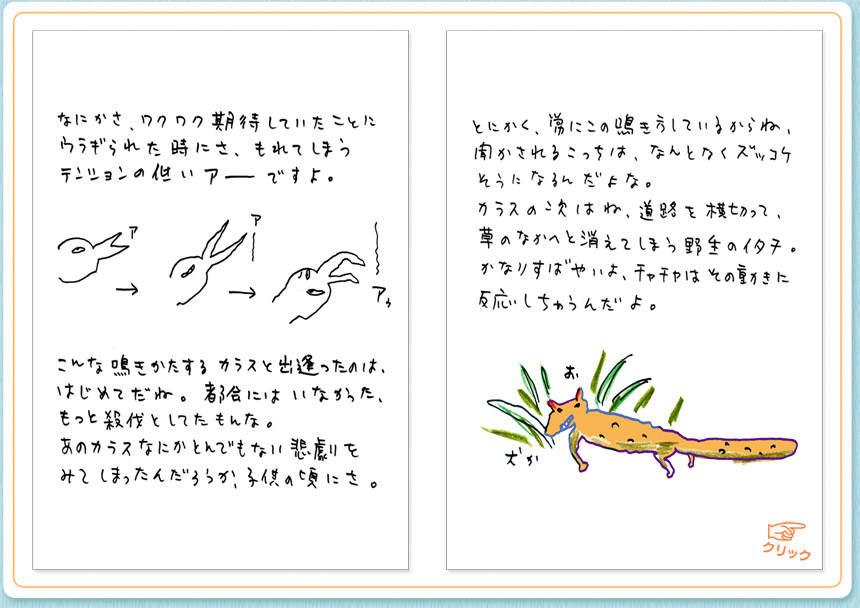 なにかさ、ワクワク期待していたことに
ウラギられた時にさ、もれてしまう
テンションの低いアーーですよ。
ア
ア
アゥ
こんな鳴きかたするカラスと出逢ったのは、
はじめてだね。都会にはいなかった、
もっと殺伐としてたもんな。
あのカラスなにかとんでもない悲劇を
みてしまったんだろうか、子供の頃にさ。
とにかく、常にこの鳴き方しているからね、
聞かされるこっちは、なんとなくズッコケ
そうになるんだよな。
カラスの次はね、道路を横切って、
草のなかへと消えてしまう野生のイタチ。
かなりすばやいよ、チャチャはその動きに
反応しちゃうんだよ。
お、
犬か
クリック